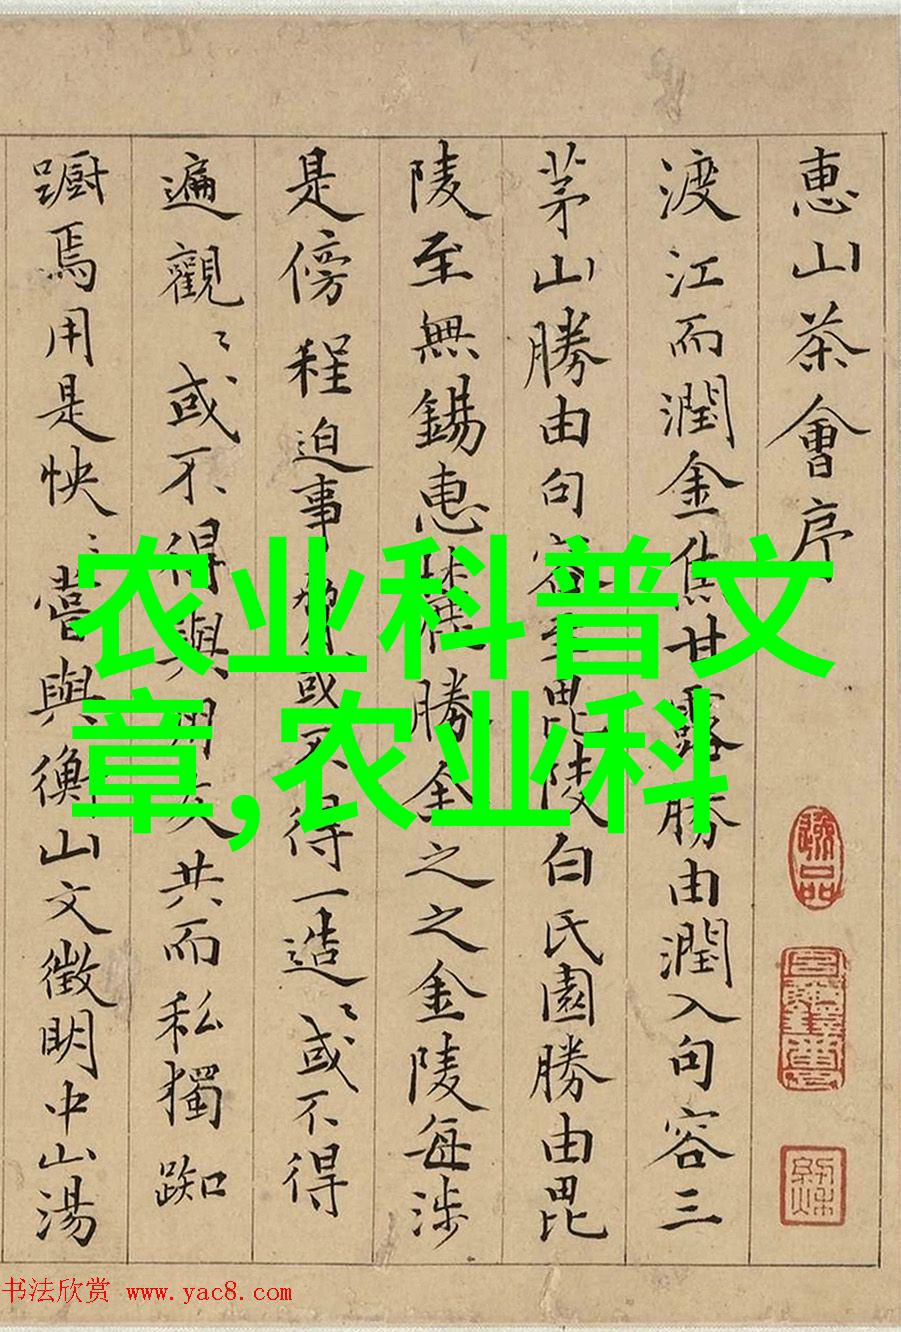 惠山茶會序
渡江而潤金焦甘露勝由潤入句容三
茅山勝由句容至毘陵白氏園勝由毘
陵至無錫惠麓勝全之之金陵每涉
是傍程迫事奪或不得一造〻或不得
遍觀〻或不得與朋友共而私獨踟
蹰焉用是怏〻嘗與衡山文徵明中山湯
农业科普文
章,农业科
逸品
书法欣赏 www.yac8.com